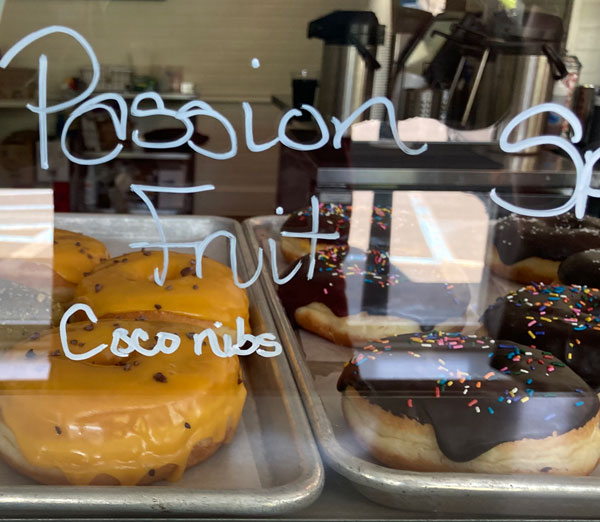 Passion
Fruit
Coco nibs
Sp